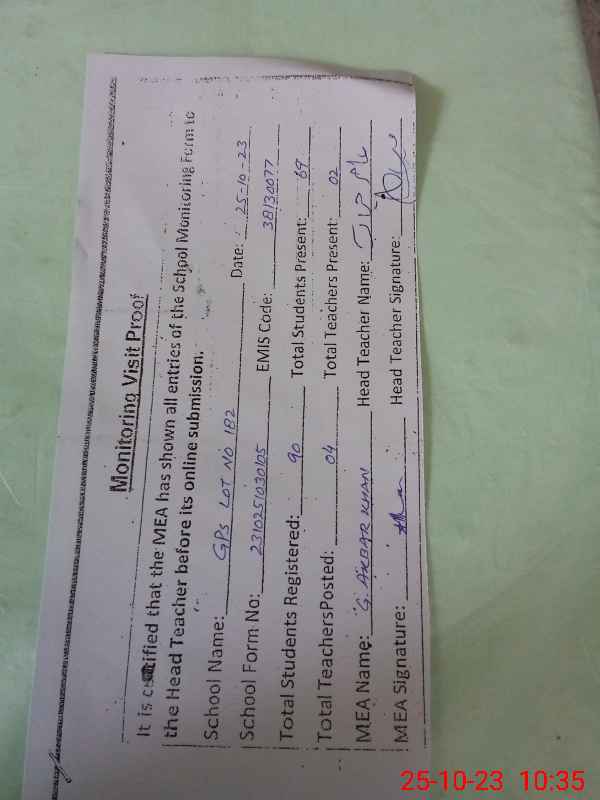 Monitoring Visit Proof
It is certified that the MEA has shown all entries of the School Monitoring Form to
the Head Teacher before its online submission.
School Name: GPS LOT NO 182 Date: 25-10-23
School Form No: 2310251030105 EMIS Code: 38130077
Total Students Registered: 90 Total Students Present: 69
Total TeachersPosted: 04 Total Teachers Present: 02
MEA Name: G. AKBAR KHAN Head Teacher Name:
MEA Signature: Head Teacher Signature:
25-10-23 10:35